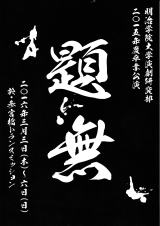 明治学院大学演劇研究部
二〇一五年度卒業公演
無題
二〇一六年三月三日(木)〜六日(日)
於、参宮橋トランスミッション